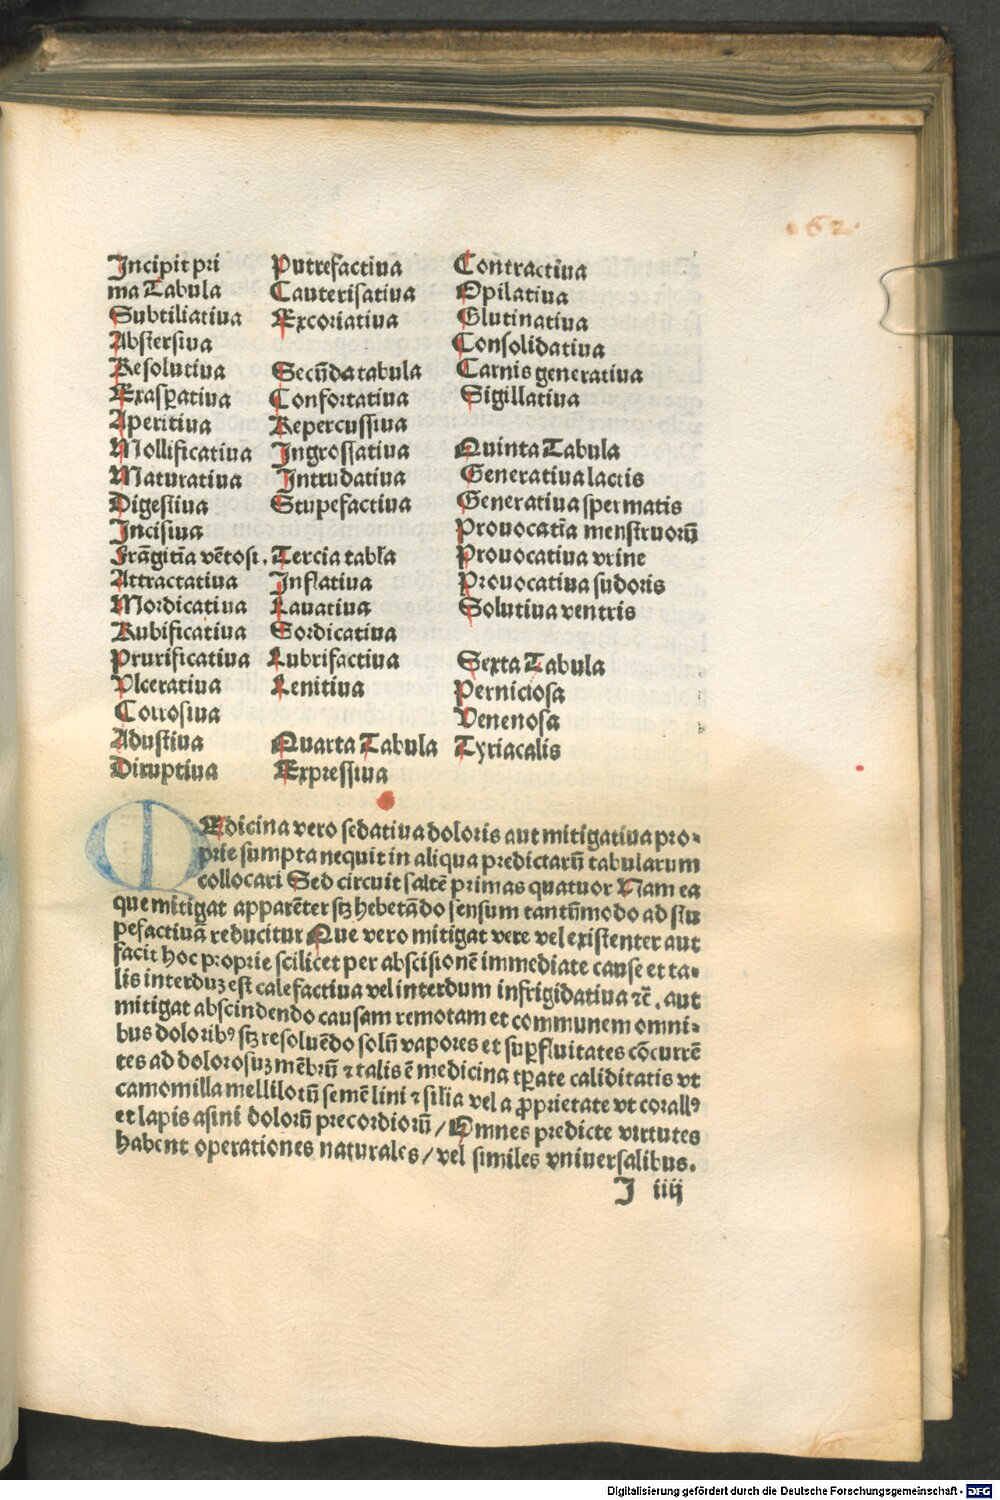 .62.
Incipit pri
ma Tabula
Subtiliatiua
Abstersiua
Resolutiua
Exasꝑatiua
Aperitiua
Mollificatiua
Maturatiua
Digestiua
Incisiua
frāgitīa vētosi.
Attractatiua
Mordicatiua
Rubificatiua
Prurificatiua
Vlceratiua
Corrosiua
Adustiua
Diruptiua
Putrefactiua
Cauterisatiua
Excoriatiua
Secūda tabula
Confortatiua
Repercussiua
Ingrossatiua
Intrudatiua
Stupefactiua
Tercia tabl̄a
Inflatiua
Lauatiua
Sordicatiua
Lubrifactiua
Lenitiua
Quarta Tabula
Expressiua
Contractiua
Opilatiua
Glutinatiua
Consolidatiua
Carnis generatiua
Sigillatiua
Quinta Tabula
Generatiua lactis
Generatiua spermatis
Prouocatīa menstruorū
Prouocatiua vrine
Prouocatiua sudoris
Solutiua ventris
Sexta Tabula
Perniciosa
Venenosa
Tyriacalis
MEdicina vero sedatiua doloris aut mitigatiua pro-
prie sumpta nequit in aliqua predictarū tabularum
collocari Sed circuit saltē primas quatuor Nam ea
que mitigat apparēter stꝫ hebetādo sensum tantūmodo ad stu
pefactiuā reducitur Que vero mitigat vere vel existenter aut
facit hoc proprie scilicet per abscisionē immediate cause et ta-
lis interduꝫ est calefactiua vel interdum infrigidatiua ⁊c̄. aut
mitigat abscindendo causam remotam et communem omni-
bus doloribꝰ stꝫ resoluēdo solū vapores et suꝑfluitates cōcurrē
tes ad dolorosuꝫ mēbrū ⁊ talis ē medicina tꝑate caliditatis vt
camomilla mellilotū semē lini ⁊ silia vel a ꝓprietate vt corallꝰ
et lapis asini dolorū precordiorū / Omnes predicte virtutes
habent operationes naturales / vel similes vniuersalibus.
I iiij
Digitalisierung gefördert durch die Deutsche Forschungsgemeinschaft - DFG